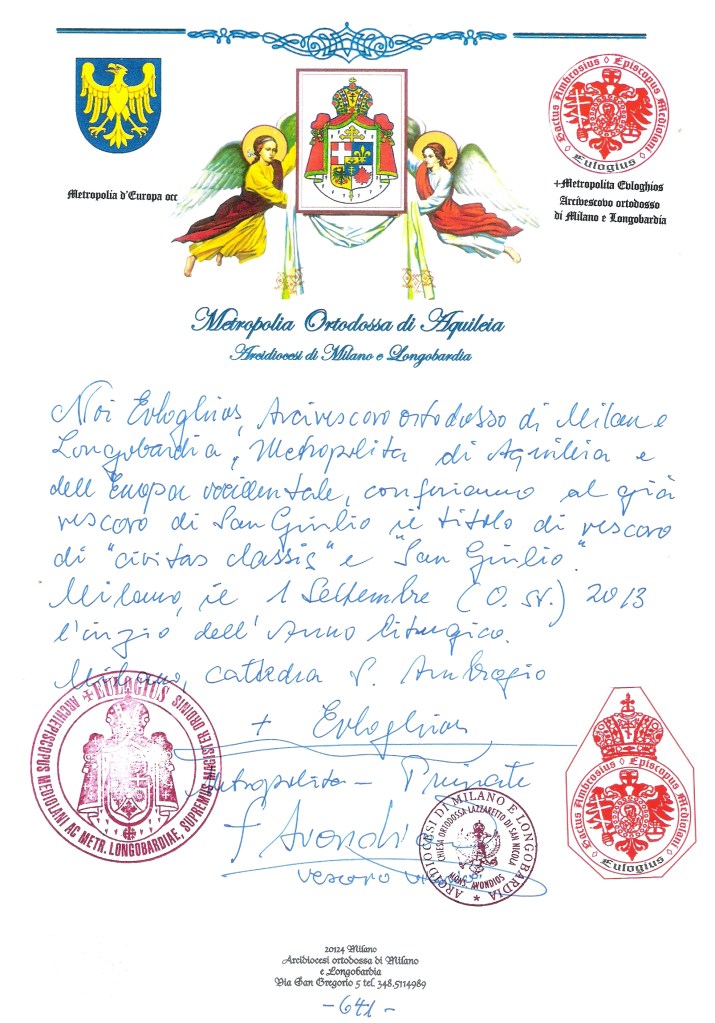 Metropolia d'Europa occ
Sactus Ambrosius ◊ Episcopus Mediolani ◊
Eulogius
+Metropolita Evloghios
Arcivescovo ortodosso
di Milano e Longobardia
Metropolia Ortodossa di Aquileia
Arcidiocesi di Milano e Longobardia
Noi Evloghios, Arcivescovo ortodosso di Milano e
Longobardia, Metropolita di Aquileia e
dell'Europa occidentale, conferiamo al già
vescovo di San Giulio il titolo di vescovo
di "civitas classis" e "San Giulio."
Milano, il 1 Settembre (O. St.) 2013
l'inizio dell'Anno liturgico.
Milano, catedra S. Ambrogio
+ Evloghios
Metropolita – Primate
+EULOGIUS
ARCHIEPISCOPUS MEDIOLANI AC METR. LONGOBARDIAE, SUPREMUS MAGISTER ORDINIS
+ Avondios
vescovo
ARCIDIOCESI DI MILANO E LONGOBARDIA
CHIESA ORTODOSSA-LAZZARETTO DI SAN NICOLA
MONS. AVONDIOS
Sactus Ambrosius ◊ Episcopus Mediolani ◊
Eulogius
20124 Milano
Arcidiocesi ortodossa di Milano
e Longobardia
Via San Gregorio 5 tel. 348.5114989
-641-